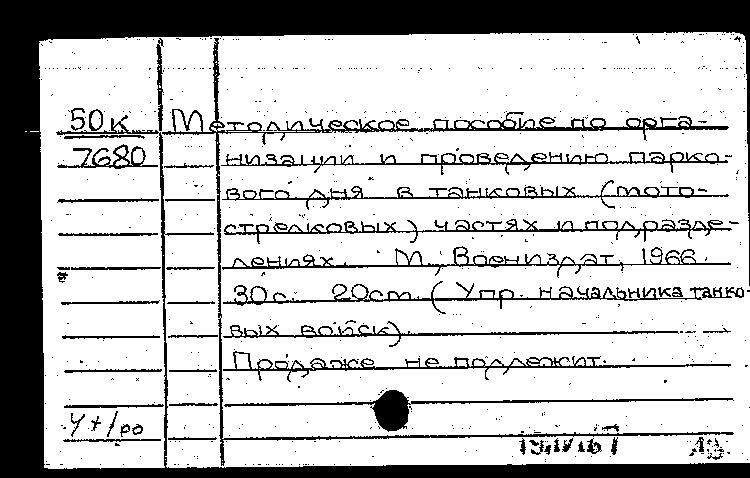 50к Методическое пособие по орга-
7680 низации и проведению парко-
вого дня в танковых (мото-
стрелковых) частях и подразде-
лениях. М., Воениздат, 1966.
30с. 20см. (Упр. начальника танко-
вых войск).
Продаже не подлежит.